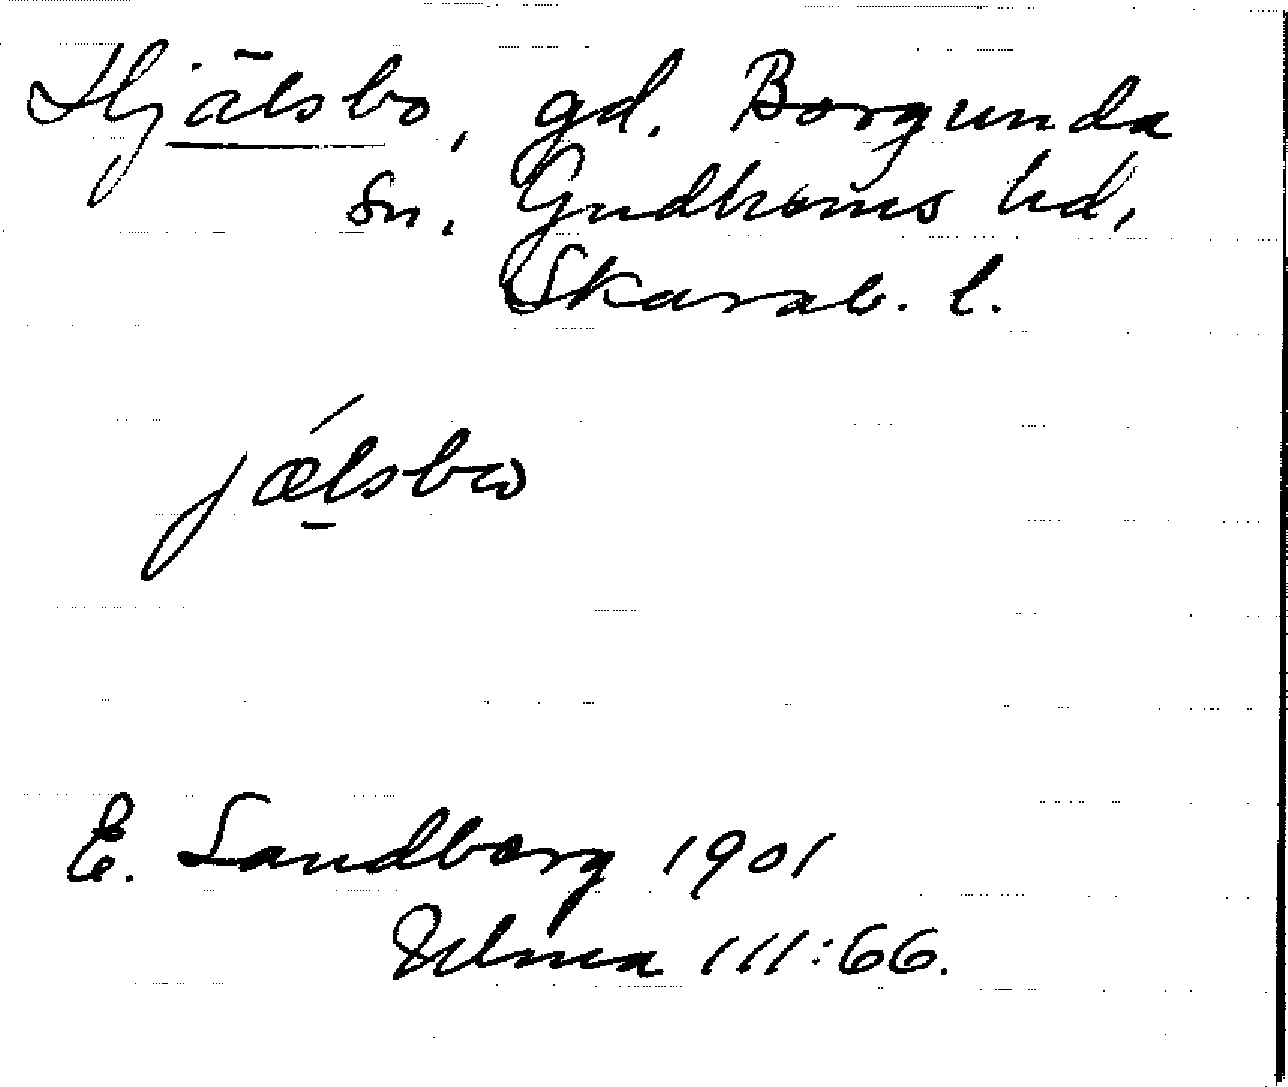 Hjälsbo, gd. Borgunda
sn. Gudhems hd,
Skarab. l.
jælsbω
E. Sandberg 1901
Ulma 111:66.